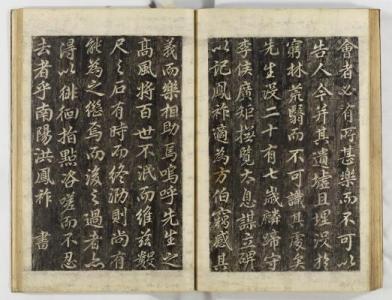 會者必有所甚樂而不可以
告人今并其遺墟且埋没於
窮林荒翳而不可識其後矣
先生没二十有七歲麟蹄守
李侯廣矩摸覽大息謀立碑
以記鳳祚適為方伯窮感其
義而樂相助焉嗚呼先生之
高風將百世不泯而維玆數
尺之石有時而終泐則尚有
能為之繼焉而後之過者亦
得以徘徊指點咨嗟而不忍
去者乎南陽洪鳳祚 書